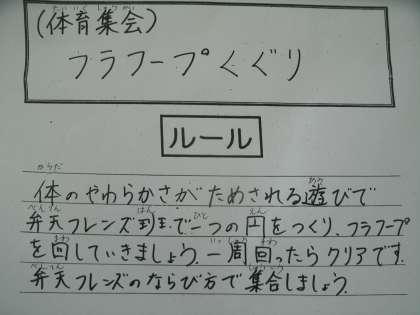 (体育集会)
フラフープくぐり
ルール
体のやわらかさがためされる遊びで
弁天フレンズ班で一つの円をつくり、フラフープ
を回していきましょう。一周回ったらクリアです。
弁天フレンズのならび方で集合しましょう。